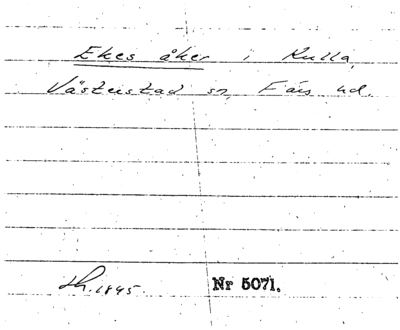 Ekes åker i Kulla,
Västerstad sn, Färs hd.
Lh. 1845. Nr 5071.